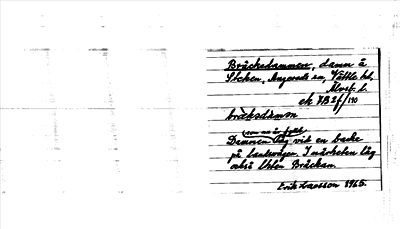 Bräckedammen, damm å
Stcken, Angereds sn, Vättle hd,
Älvsb. l.
ek 7B 2f/110
bräksdamm
som nu är fylld
Dammen låg vid en backe
på landsvägen. I närheten låg
också Utön Bräckan.
Erik Larsson 1965.